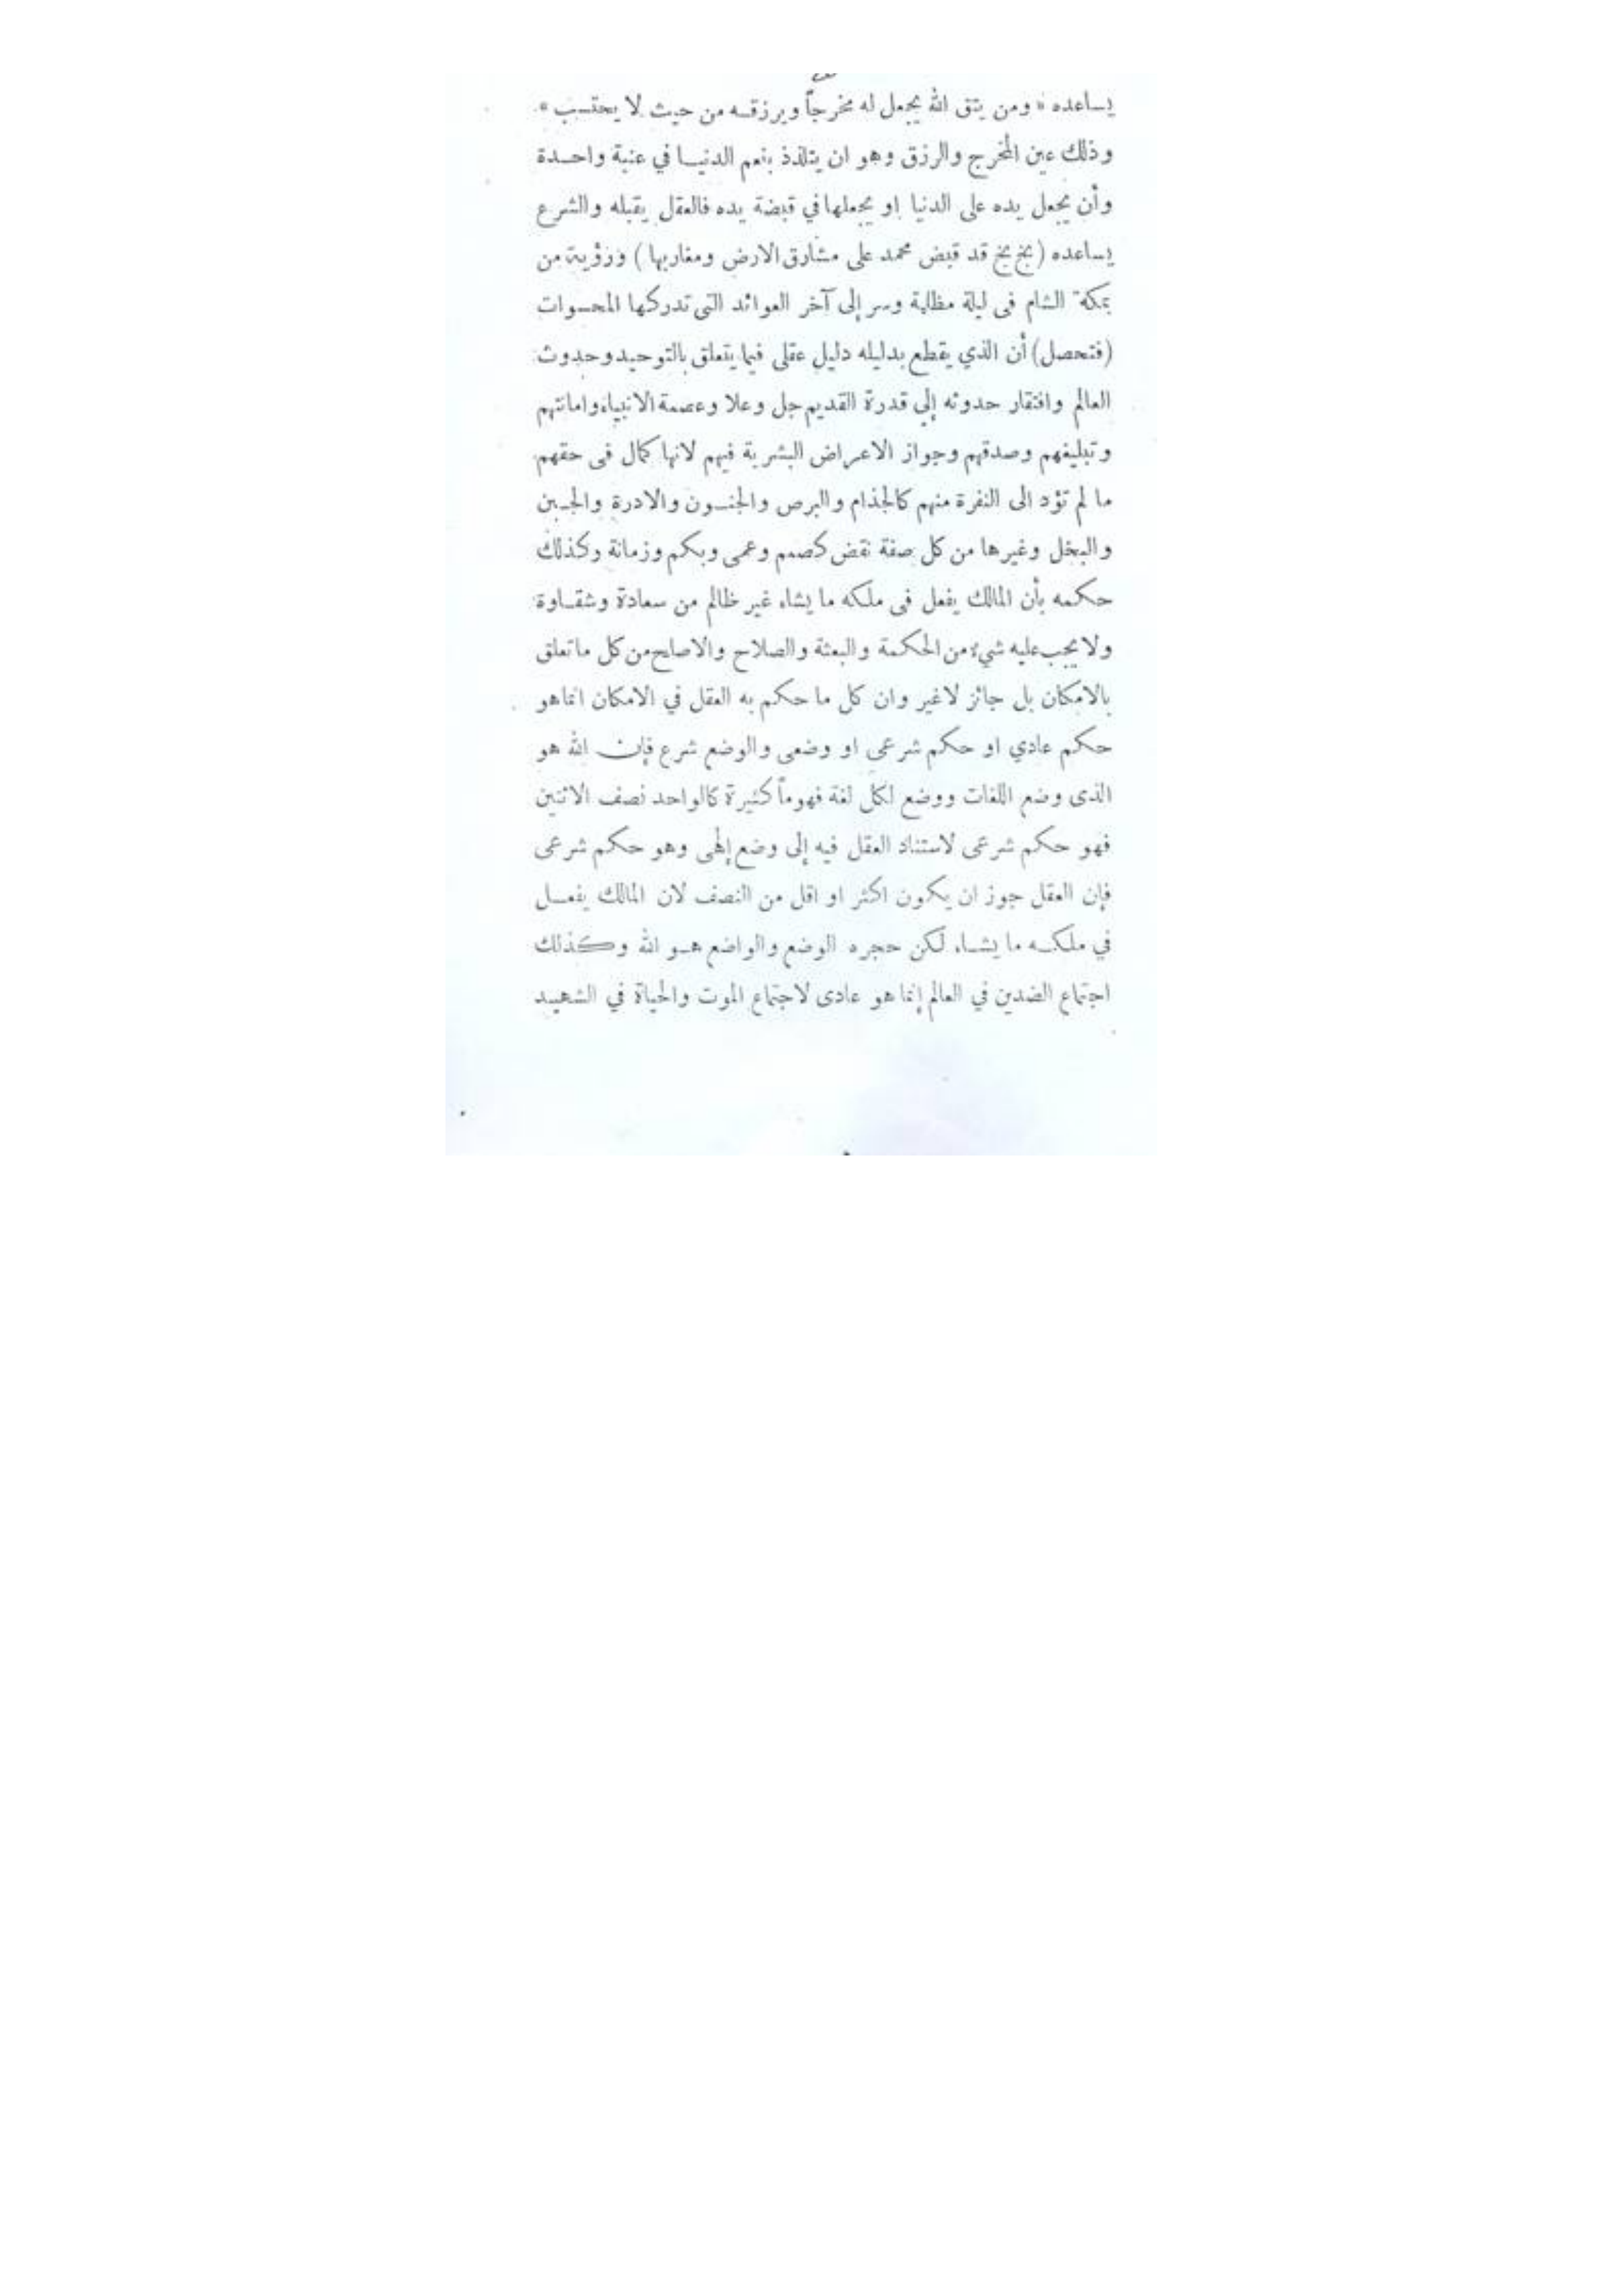 يساعده « ومن يتق الله يجعل له مخرجاً ويرزقه من حيث لا يحتسب ».
وذلك عين المخرج والرزق وهو ان يتلذذ بنعم الدنيا في عنبة واحدة
وأن يجعل يده على الدنيا او يجعلها في قبضة يده فالعقل يقبله والشرع
يساعده (بخ بخ قد قبض محمد على مشارق الارض ومغاربها) ورؤية من
بمكة الشام فى ليلة مظلمة وسر إلى آخر العوائد التى تدركها المحسوات
(فتحصل) أن الذي يقطع بدليله دليل عقلى فيما يتعلق بالتوحيد وحدوث
العالم وافتقار حدوثه إلى قدرة القديم جل وعلا وعصمة الانبياء وامانتهم
وتبليغهم وصدقهم وجواز الاعراض البشرية فيهم لانها كمال فى حقهم
ما لم تؤد الى النفرة منهم كالجذام والبرص والجنون والادرة والجبن
والبخل وغيرها من كل صفة نقض كصمم وعمى وبكم وزمانة وكذلك
حكمه بأن المالك يفعل فى ملكه ما يشاء غير ظالم من سعادة وشقاوة
ولا يجب عليه شيء من الحكمة والبعثة والصلاح والاصلح من كل ما تعلق
بالامكان بل جائز لا غير وان كل ما حكم به العقل في الامكان انما هو
حكم عادي او حكم شرعى او وضعى والوضع شرع فإن الله هو
الذى وضع اللغات ووضع لكل لغة فهوماً كثيرة كالواحد نصف الاثنين
فهو حكم شرعى لاستناد العقل فيه إلى وضع إلهى وهو حكم شرعى
فإن العقل جوز ان يكون اكثر او اقل من النصف لان المالك يفعل
في ملكه ما يشاء لكن حجره الوضع والواضع هو الله وكذلك
اجتماع الضدين في العالم إنما هو عادى لاجتماع الموت والحياة في الشهيد